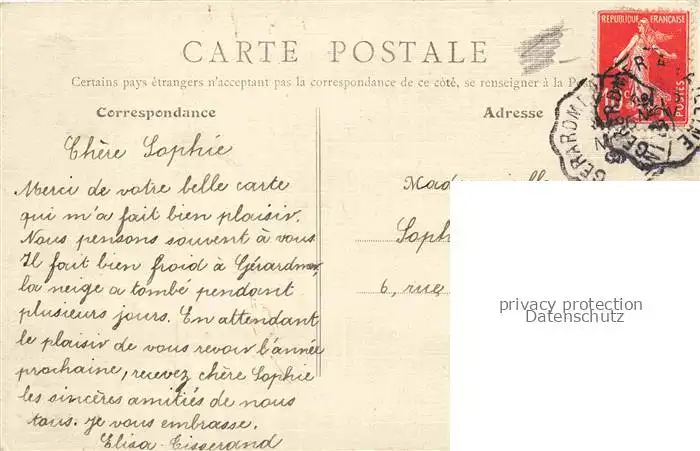 CARTE POSTALE
Certains pays étrangers n'acceptant pas la correspondance de ce côté, se renseigner à la P
Correspondance
Adresse
REPUBLIQUE FRANÇAISE
POSTES
GERARDMER
Chère Sophie
Merci de votre belle carte
qui m'a fait bien plaisir.
Nous pensons souvent à vous
Il fait bien froid à Gérardmer,
la neige a tombé pendant
plusieurs jours. En attendant
le plaisir de vous revoir l'année
prochaine, recevez chère Sophie
les sincères amitiés de nous
tous. je vous embrasse.
Elisa Tisserand
Mad
Soph
6, rue
privacy protection
Datenschutz